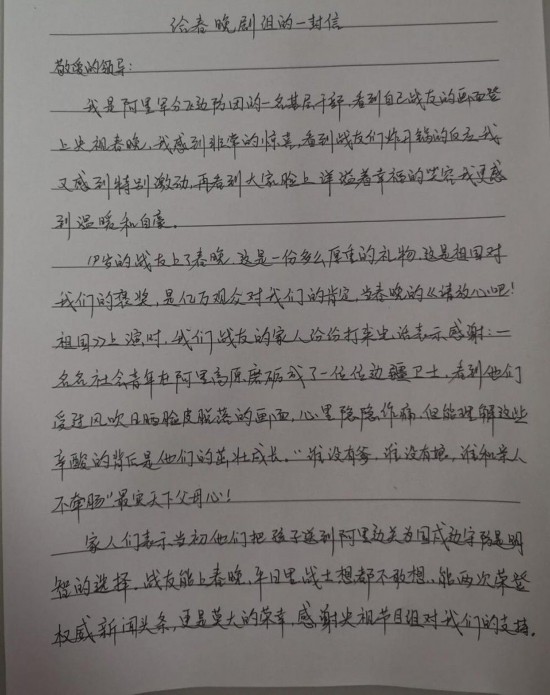 给春晚剧组的一封信
敬爱的领导：
我是阿里军分区边防团的一名基层干部，看到自己战友的画面登
上央视春晚，我感到非常的惊喜，看到战友们炸开锅的反应我
又感到特别激动，再看到大家脸上洋溢着幸福的笑容我更感
到温暖和自豪。
岁的战友上了春晚，这是一份多么厚重的礼物，这是祖国对
我们的褒奖，是亿万观众对我们的肯定，当春晚的《请放心吧！
祖国》上演时，我们战友的家人纷纷打来电话表示感谢：一
名名社会青年在阿里高原磨砺成了一位位边疆卫士，看到他们
受过风吹日晒脸皮脱落的画面，心里隐隐作痛，但能理解这些
辛酸的背后是他们的茁壮成长。“谁没有爹，谁没有娘，谁和亲人
不牵肠”最实天下父母心！
家人们表示当初他们把孩子送到阿里边关为国戍边守防是明
智的选择，战友能上春晚，平日里战士想都不敢想，能两次荣登
权威新闻头条，更是莫大的荣幸，感谢央视节目组对我们的支持。